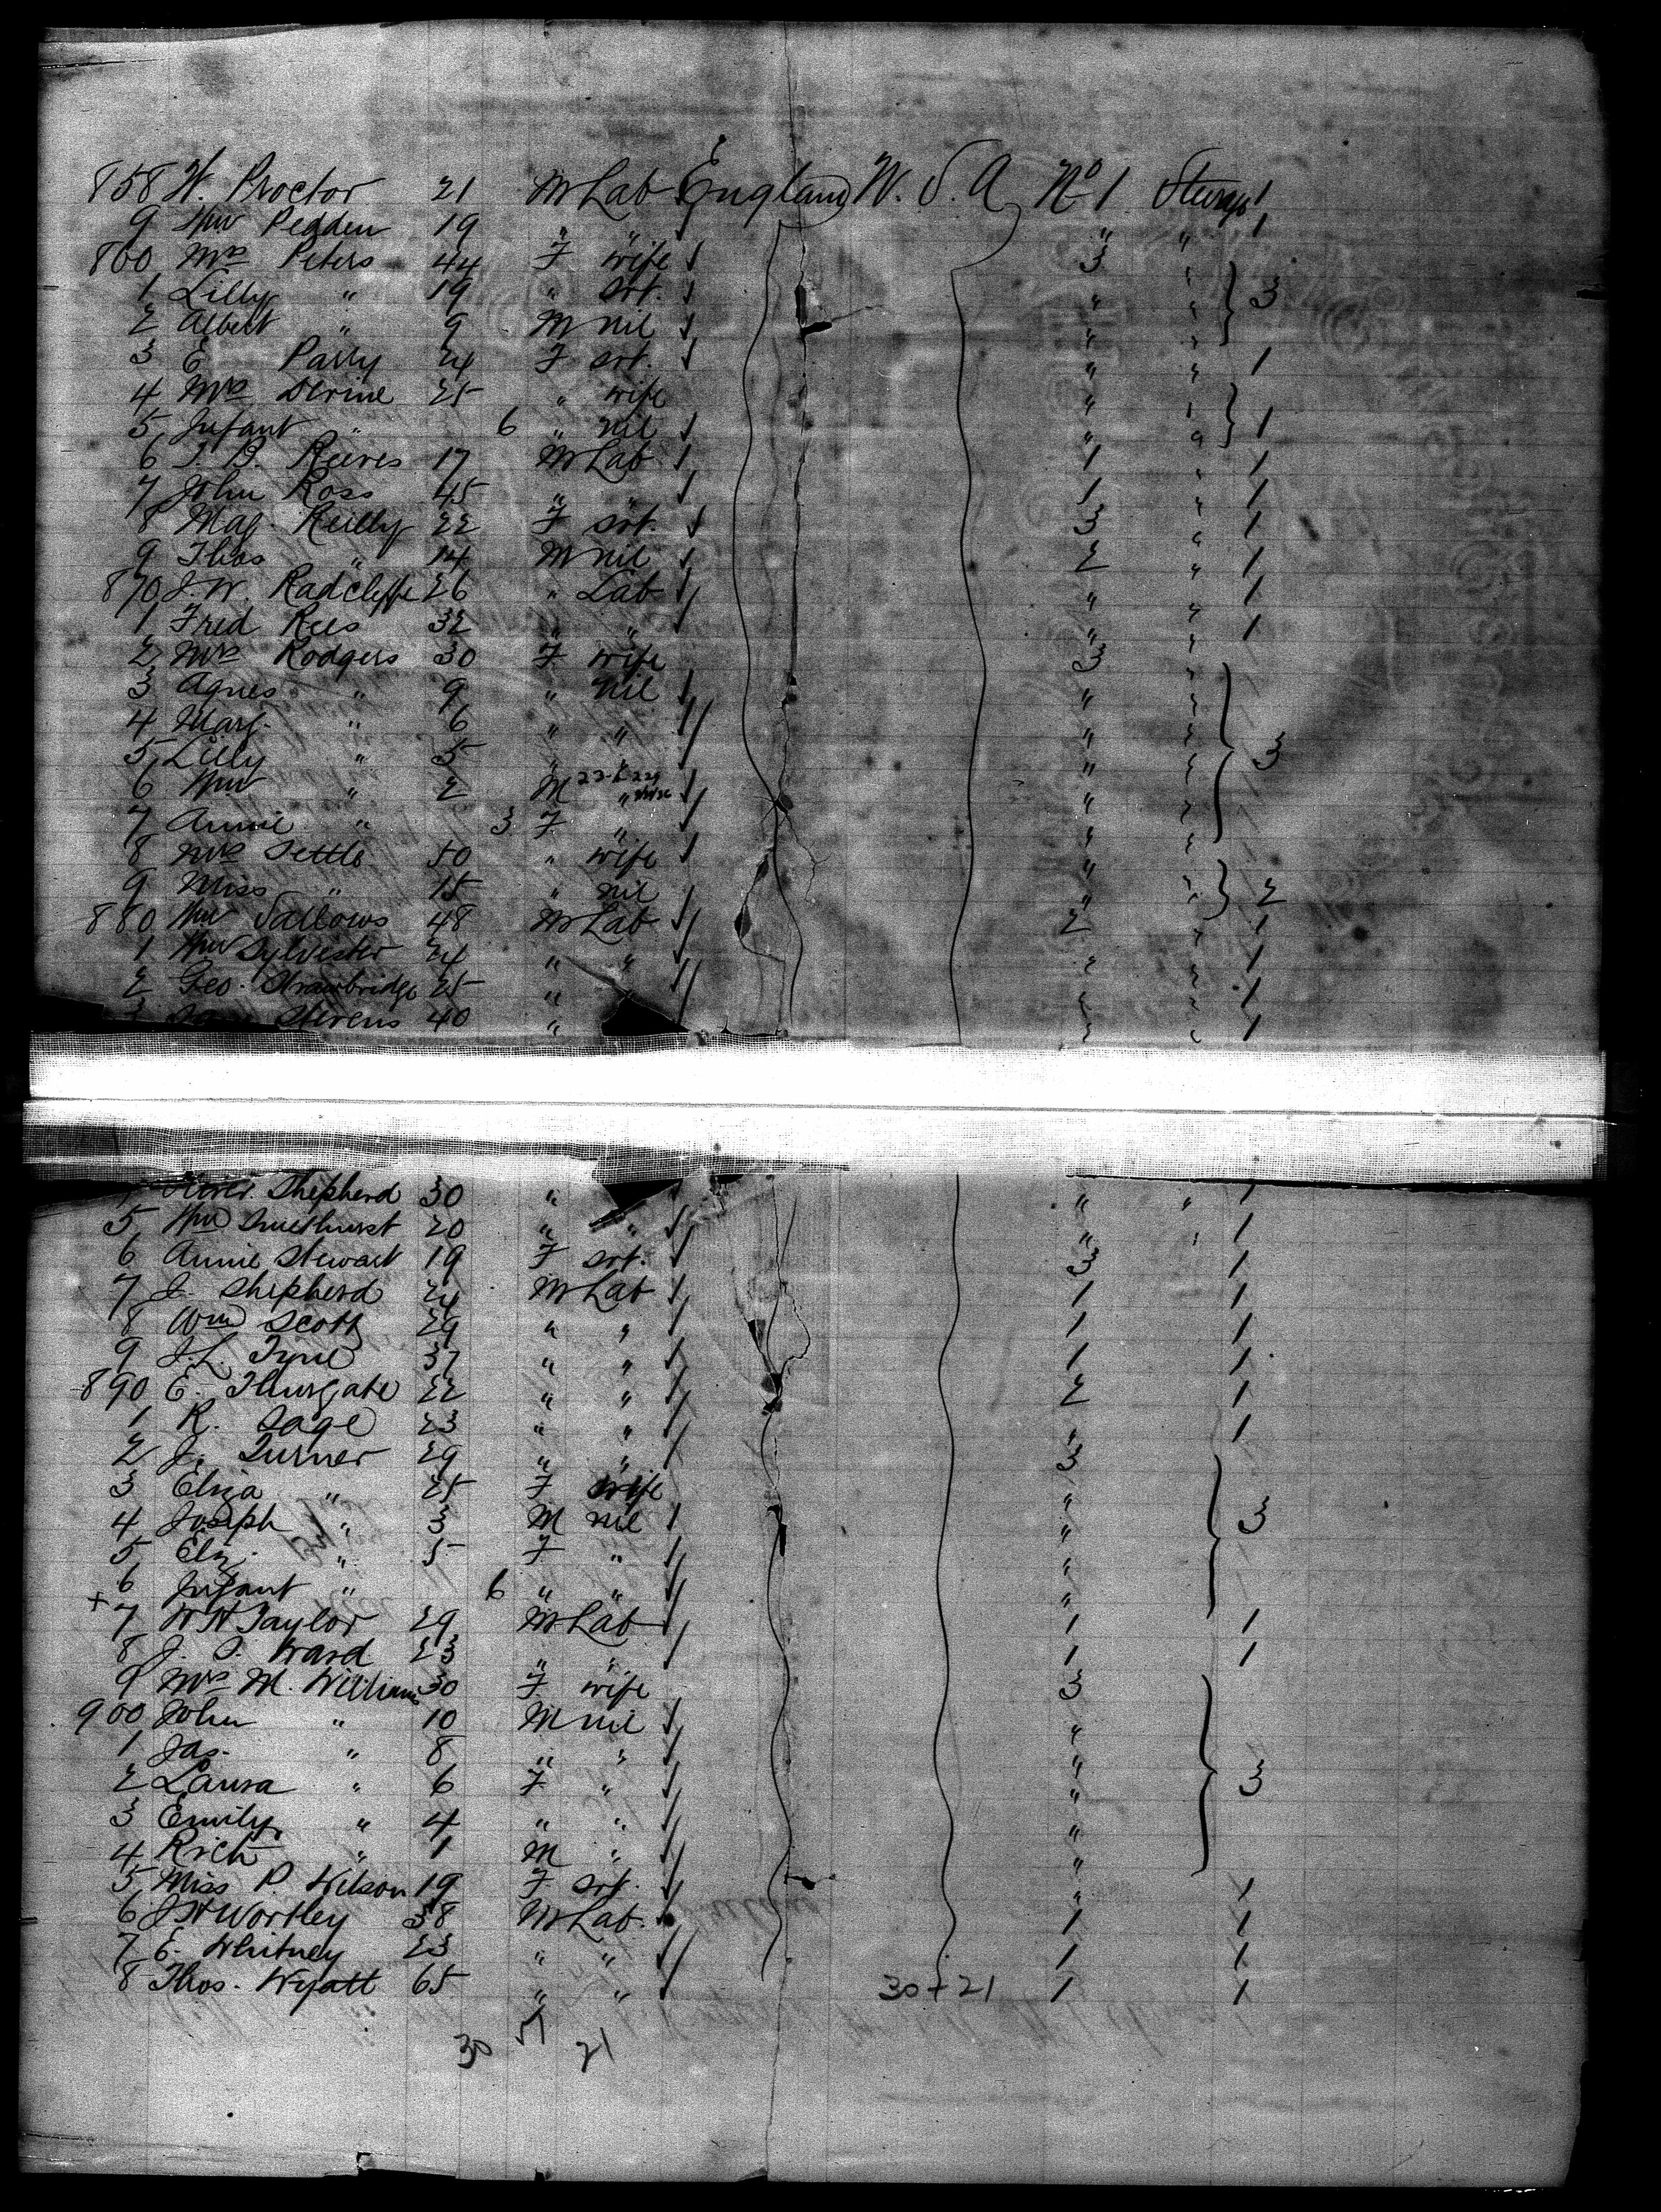 858 W. Proctor 21 M Lab England U.S.A No 1 Sturge 1
9 Wm Pedden 19 " " " " 1
860 Mrs Peters 44 F wife 3 "
1 Lilly " 19 " srt. " " 3
2 Albert " 9 M nil " "
3 E Parry 24 F srt. " " 1
4 Mrs 25 " wife " "
5 Infant " 6 " nil " " 1
6 J. B. Reeves 17 M Lab 1 " 1
7 John Ross 45 " " 1 " 1
8 Mag. Reilly 22 F srt. 3 " 1
9 Thos " 14 M nil 2 " 1
870 J. W. Radcliffe 26 " Lab " " 1
1 Fred Rees 32 " " " " 1
2 Mrs Rodgers 30 F wife 3 "
3 Agnes " 9 " nil " "
4 Marg. " 6 " " " "
5 Lilly " 5 " " " " 3
6 Wm " 2 M " " "
7 Annie " 3 F " " "
8 Mrs Settle 50 " wife " "
9 Miss " 15 " nil " " 2
880 Wm Sallows 48 M Lab 2 " 1
1 Wm Sylvester 24 " " " " 1
2 Geo. Strawbridge 25 " " " 1
3 Stevens 40 " " " 1
Shepherd 30 " " " 1
5 Wm Smethurst 20 " " " " 1
6 Annie Stewart 19 F srt. 3 1
7 J. Shepherd 24 M Lab 1 1
8 Wm Scott 29 " " 1 1
9 J. L. Tyne 37 " " 1 1
890 E. Thurgate 22 " " 2 1
1 R. Sage 23 " " " 1
2 J. Turner 29 " " 3
3 Eliza " 25 F wife "
4 Joseph " 3 M nil " 3
5 Eliz. " 5 F " "
6 Infant " 6 " " "
+ 7 W H Taylor 29 M Lab 1 1
8 J. S. Ward 23 " " 1 1
9 Mrs M. Williams 30 F wife 3
900 John " 10 M nil "
1 Jas. " 8 " " "
2 Laura " 6 F " " 3
3 Emily " 4 " " "
4 Rich " 1 M " "
5 Miss P. Wilson 19 F srt. " 1
6 J W Wortley 38 M Lab. 1 1
7 E. Whitney 23 " " 1 1
8 Thos. Wyatt 65 " " 30 + 21 1 1
30 51 21